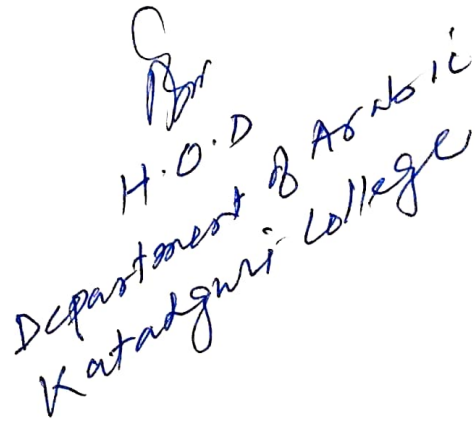 H.O.D
Department of Arabic
Katadguri College